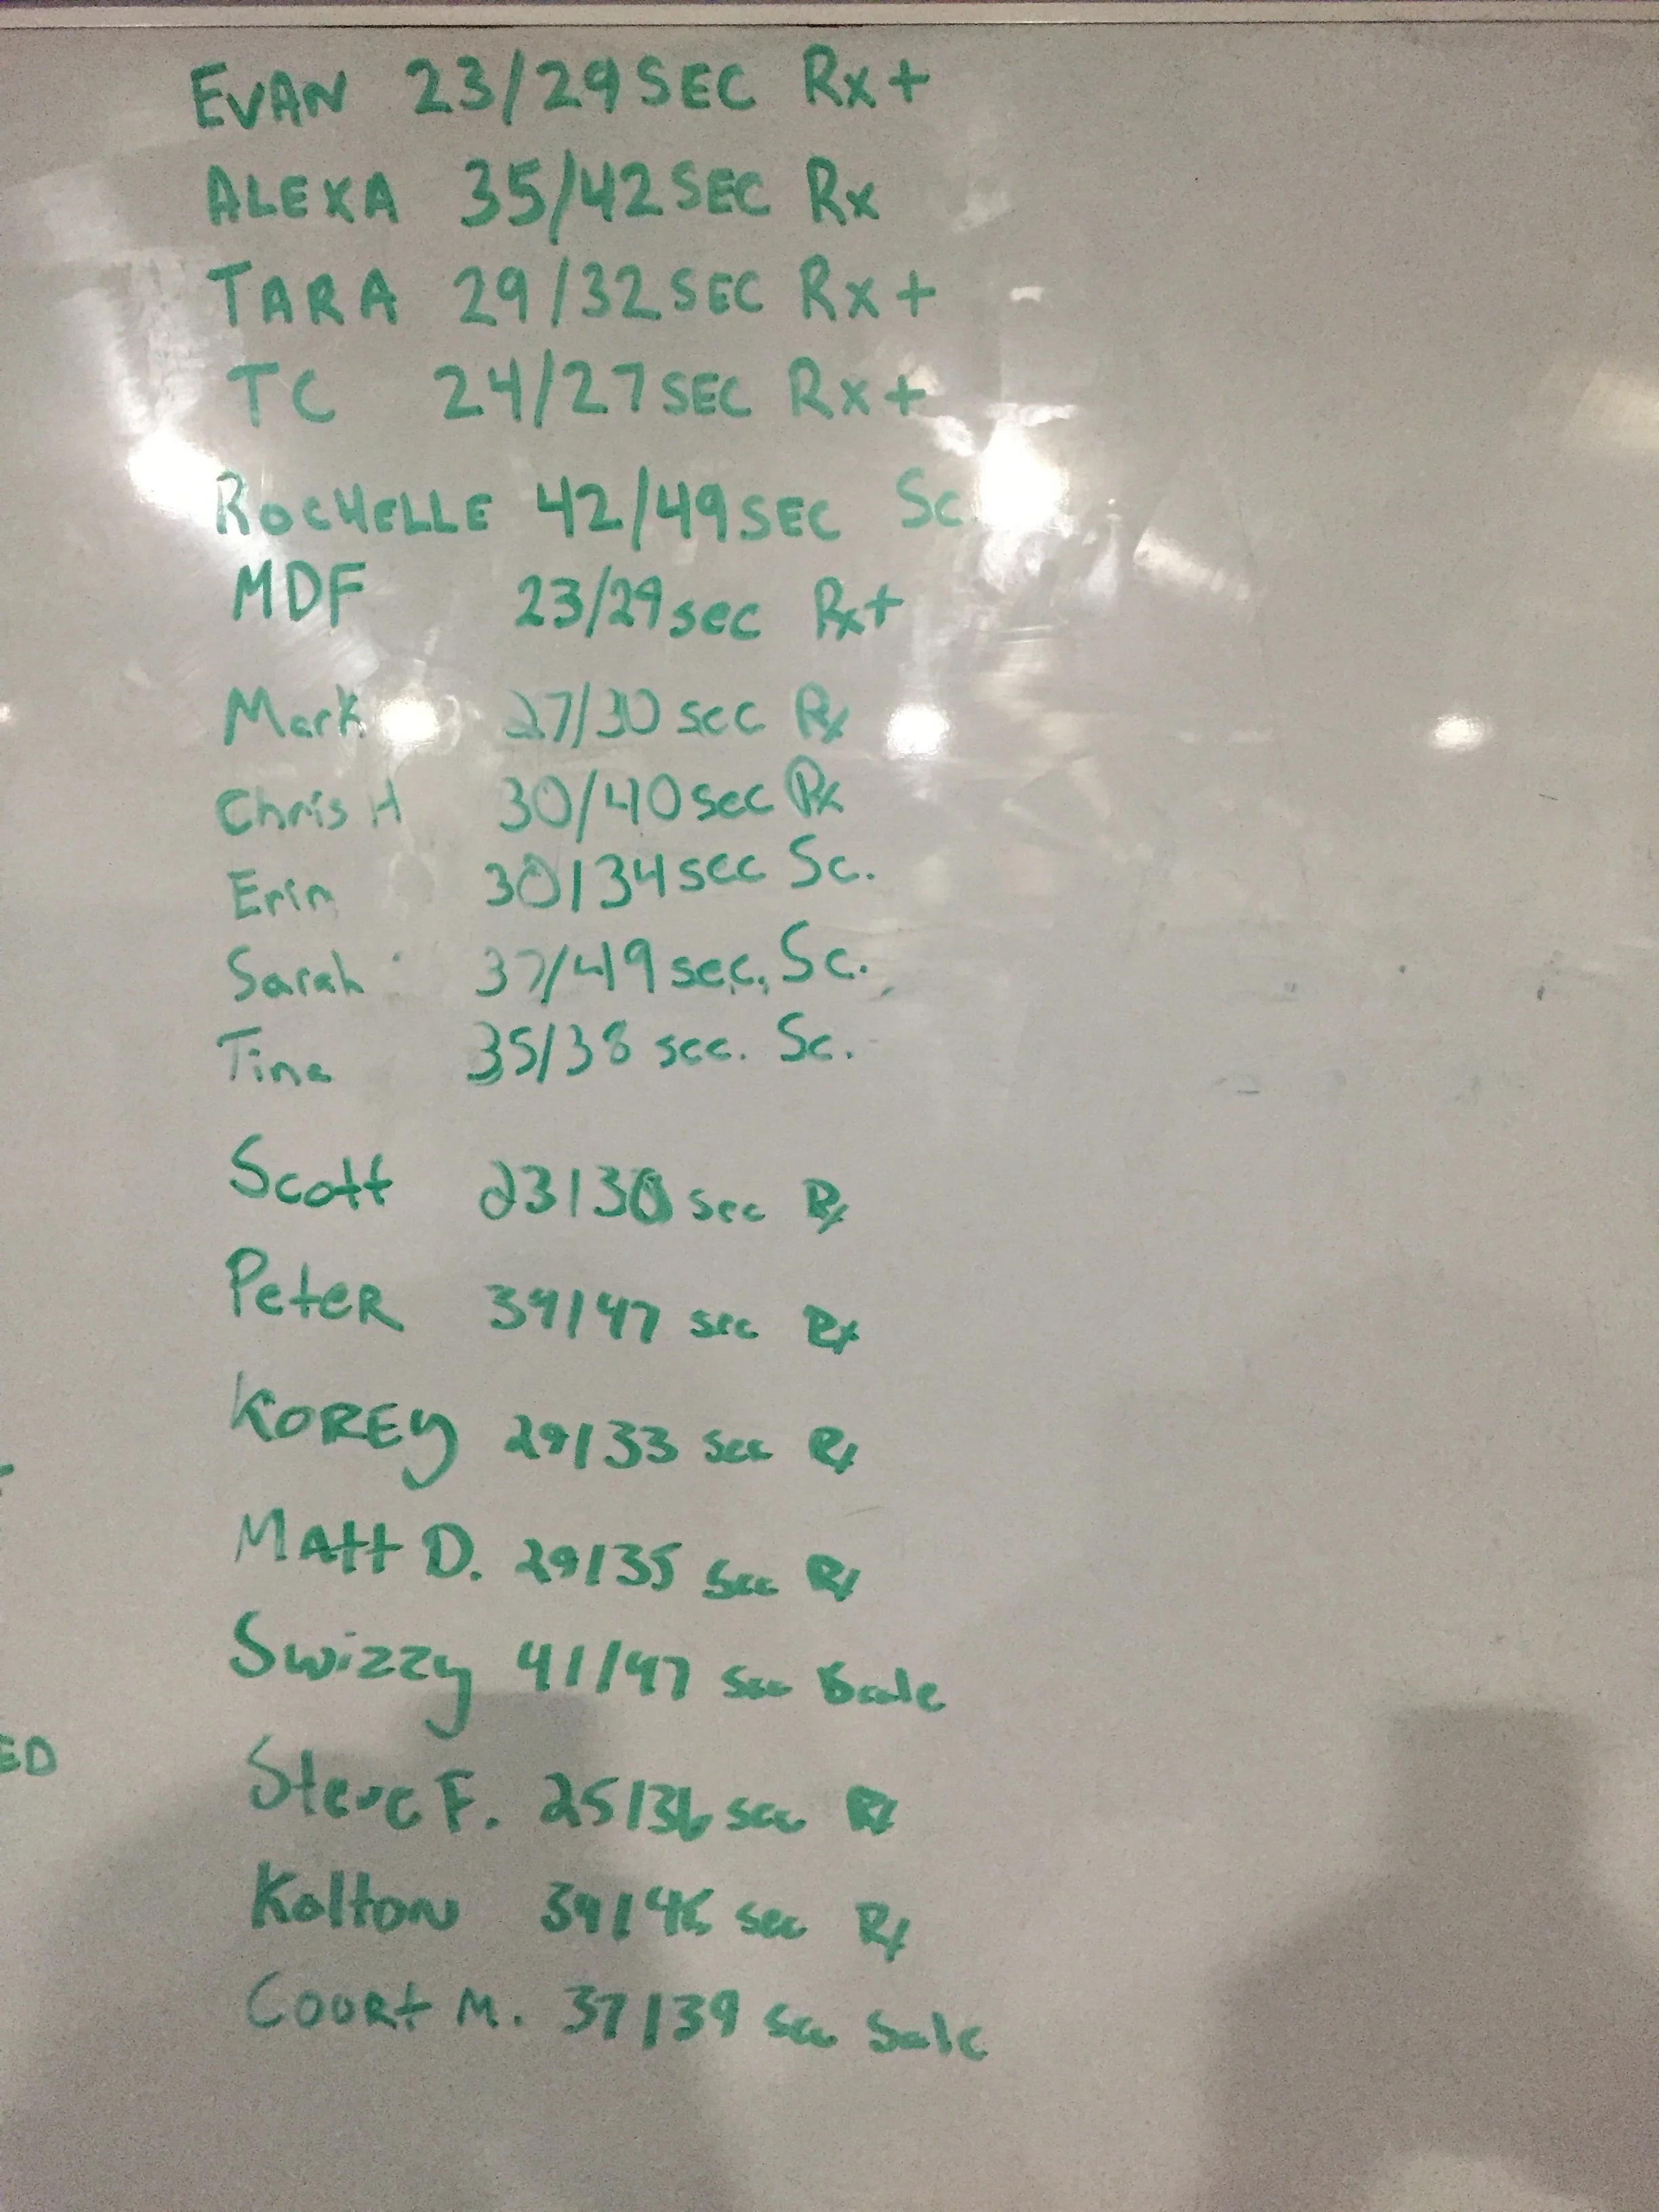 EVAN 23/29 SEC Rx+
ALEXA 35/42 SEC Rx
TARA 29/32 SEC Rx+
TC 24/27 SEC Rx+
ROCHELLE 42/49 SEC Sc.
MDF 23/29 sec Rx+
Mark 27/30 sec Rx
Chris H 30/40 sec Rx
Erin 30/34 sec Sc.
Sarah 37/49 sec. Sc.
Tina 35/38 sec. Sc.
Scott 23/30 sec Rx
PeteR 39/47 sec Rx
KOREY 29/33 sec Rx
MAtt D. 29/35 sec Rx
Swizzy 41/47 sec Scale
ED
Steve F. 25/36 sec Rx
Kolton sec Rx
COURt M. 37/39 sec Scale